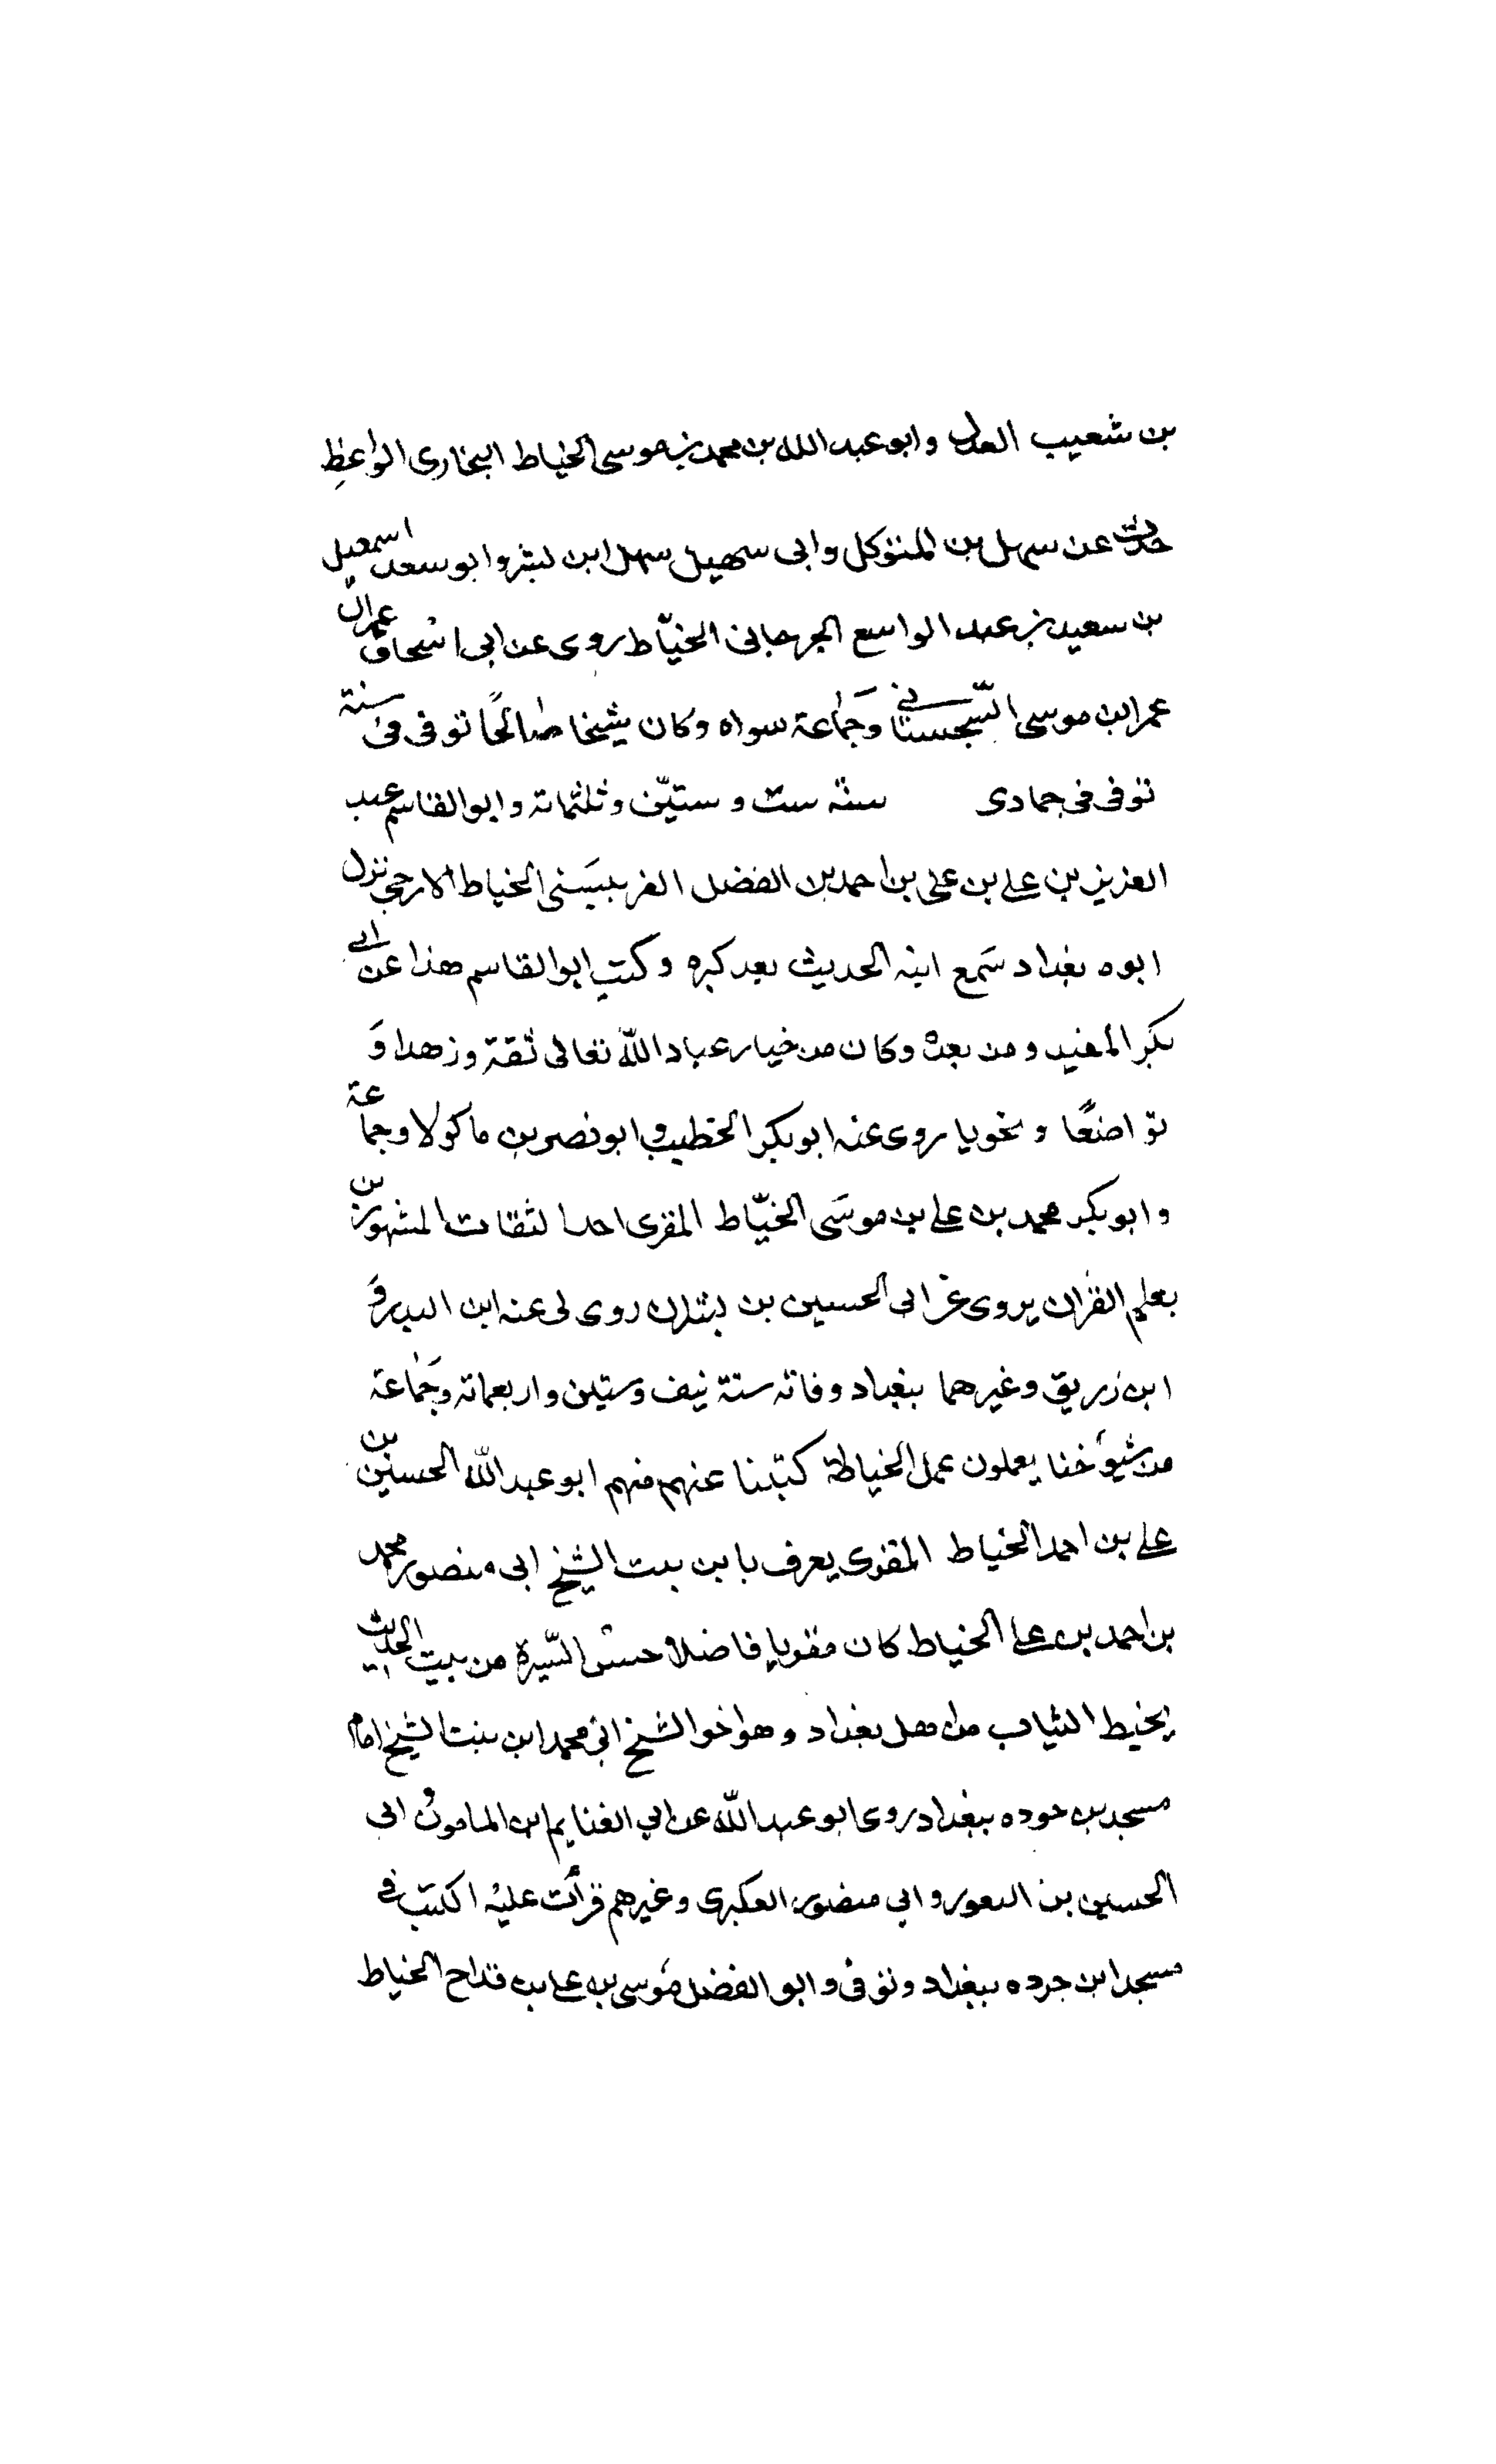 بن شعيب العدل وابو عبد الله بن محمد بن موسى الخياط البخارى الواعظ
حدث عن سهل بن المتوكل وابى سهيل سهل ابن بشر وابو سعد اسمعيل
بن سعيد بن عبد الواسع الجرجانى الخيّاط روى عن ابى اسحاق عمران
عمر ابن موسى السّجستانى وجَماعة سواه وكان شيخا صالحًا توفى فى سنة
توفى فى جمادى سنة ست و ستيّن وثلثماتة وابو القاسم عبد
العزيز بن على بن على بن احمد بن الفضل القرميسَنى الخياط الازجى نزل
ابوه بغداد سَمع ابنه الحديث بعد كبره وكتب ابو القاسم هذا عن ابى
بكَر المفيد ومن بعده وكان من خيار عباد اللّٰه تعالى ثقة وزهدا وَ
تواضعًا و نحويا روى عنه ابو بكر الخطيب وابو نصر بن ماكولا وجماعة
وابو بكر محمد بن على بن موسَى الخيّاط المقرى احد الثقات المشهورين
بعلم القران يروى عن ابى الحسين بن بشران روى لى عنه ابن البدر وَ
ابن زريق وغيرهما ببغداد وفاته ستة نيف وستين واربعماتة وجَماعة
من شيوخنا يعملون عمل الخياطة كتبنا عنهم منهم ابو عبد اللّٰه الحسين بن
على بن احمد الخياط المقرى يعرف بابن بنت الشيخ ابى منصور محمد
بن احمد بن على الخياط كان مقريا فاضلا حسن السّيرة من بيت الحديث
يخيط الثياب من اهل بغداد وهو اخو الشيخ ابى محمد ابن بنت الشيخ امام
مسجد بن حوده ببغداد روى ابو عبد اللّٰه عن ابي الغنايم ابن المامون ابى
الحسين بن النعور وابي منصور العكبرى وغيرهم قرأت عليه الكتب في
مسجد ابن جرده ببغداد وتوفى وابو الفضل موسى بن على بن قداح الخياط